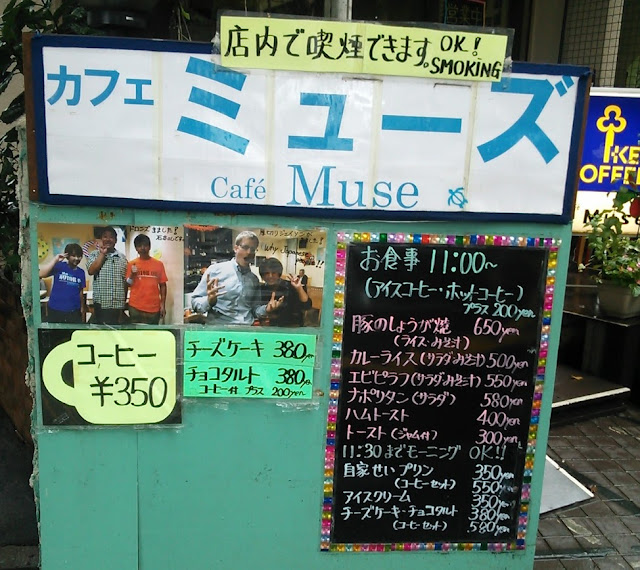 店内で喫煙できます。OK!
SMOKING
カフェ ミューズ
Café Muse
KEY
OFFEE
ドロンズきました!
Why Japanese
コーヒー
¥350
チーズケーキ 380yen
チョコタルト 380yen
コーヒー付 プラス 200yen
お食事 11:00~
(アイスコーヒー・ホットコーヒー)
プラス 200yen
豚のしょうが焼 650yen
(ライス・みそ汁)
カレーライス(サラダみそ汁) 500yen
エビピラフ(サラダみそ汁) 550yen
ナポリタン(サラダ) 580yen
ハムトースト 400yen
トースト(ジャム付) 300yen
11:30までモーニング OK!!
自家せいプリン 350yen
(コーヒーセット) 550yen
アイスクリーム 350yen
チーズケーキ・チョコタルト 380yen
(コーヒーセット) 580yen